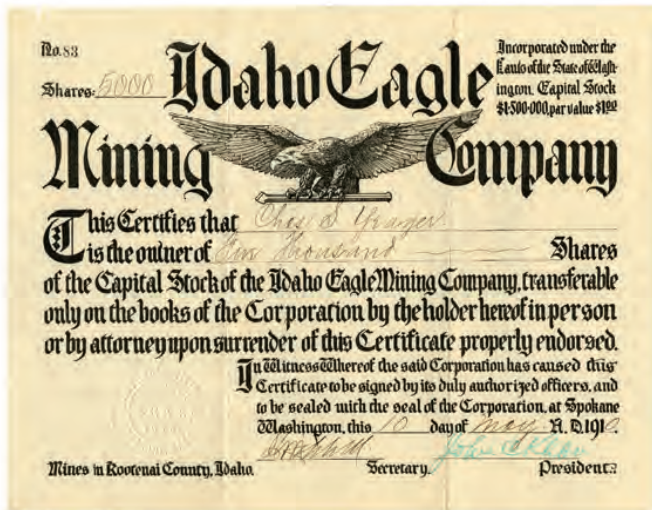 No. 83
Shares. 5000
Idaho Eagle
Mining Company
Incorporated under the
Laws of the State of Wash-
ington. Capital Stock
$1·500·000, par value $1.00
This Certifies that Chas
is the owner of Thousand Shares
of the Capital Stock of the Idaho Eagle Mining Company, transferable
only on the books of the Corporation by the holder hereof in person
or by attorney upon surrender of this Certificate properly endorsed.
In Witness Whereof the said Corporation has caused this
Certificate to be signed by its duly authorized officers, and
to be sealed with the seal of the Corporation, at Spokane
Washington, this 10 day of May A. D. 191
John
Mines in Kootenai County, Idaho. Secretary. President.